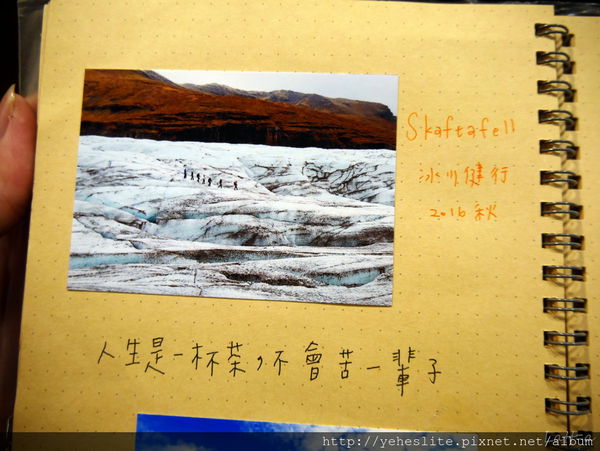 Skaftafell
冰川健行
2016 秋
人生是一杯茶,不會苦一輩子
http://yeheslite.pixnet.net/album